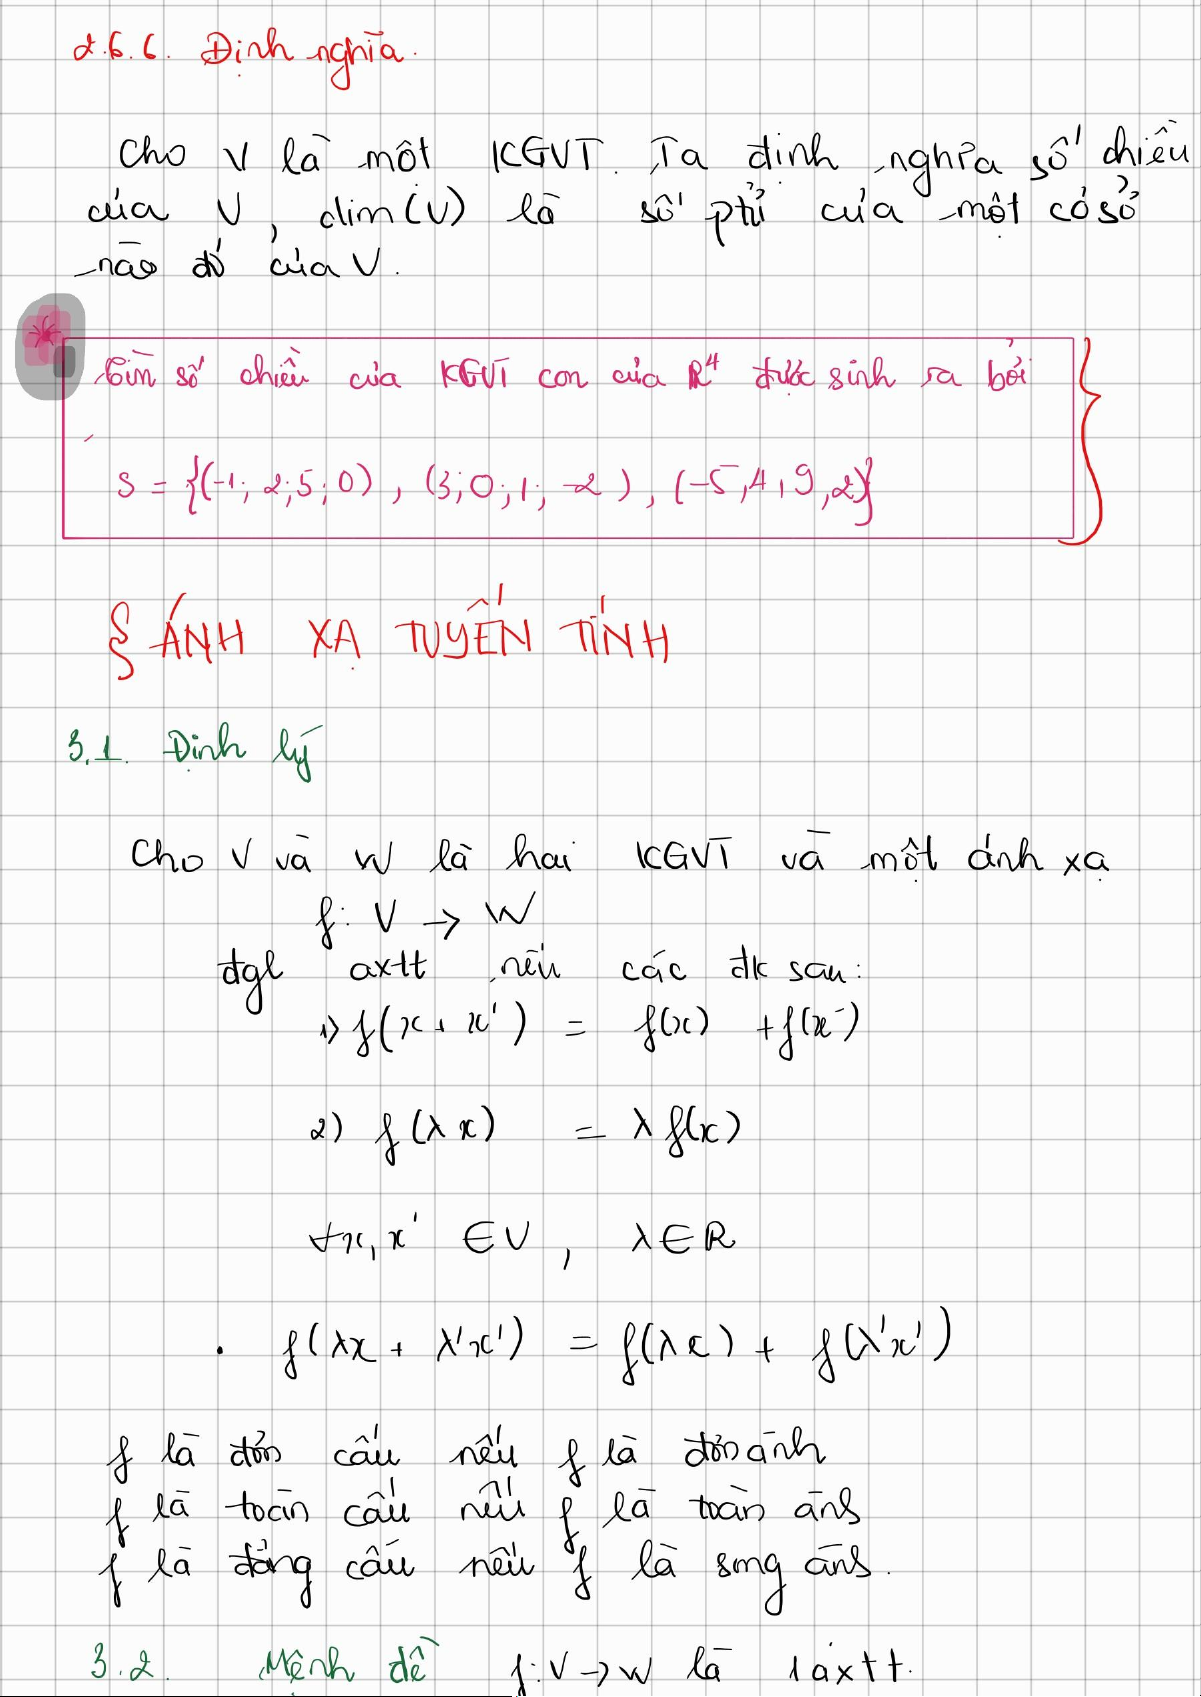 2.6.6. Định nghĩa.
Cho V là một KGVT. Ta định nghĩa số chiều
của V, dim(V) là số ptử của một cơ sở
nào đó của V.
Tìm số chiều của KGVT con của R⁴ được sinh ra bởi
S = {(-1; 2; 5; 0), (3; 0; 1; -2), (-5, 4, 9, 2)}
§ ÁNH XẠ TUYẾN TÍNH
3.1. Định lý
Cho V và W là hai KGVT và một ánh xạ
f: V → W
đgl axtt nếu các đk sau:
1) f(x + x') = f(x) + f(x')
2) f(λx) = λf(x)
∀x, x' ∈ V, λ ∈ R
. f(λx + λ'x') = f(λx) + f(λ'x')
f là đơn cấu nếu f là đơn ánh
f là toàn cấu nếu f là toàn ánh
f là đẳng cấu nếu f là song ánh.
3.2. Mệnh đề f: V → W là 1 áxtt.